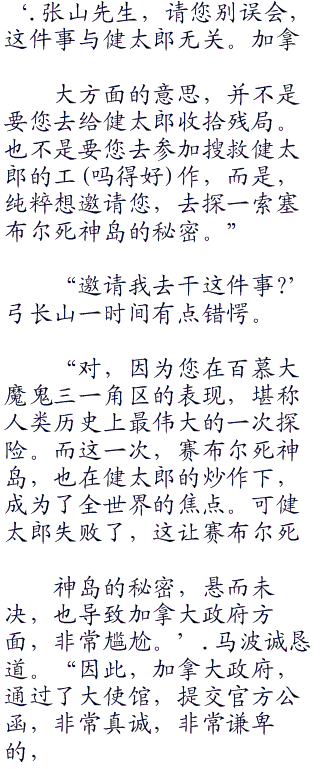 ‘.张山先生，请您别误会，
这件事与健太郎无关。加拿
大方面的意思，并不是
要您去给健太郎收拾残局。
也不是要您去参加搜救健太
郎的工(吗得好)作，而是，
纯粹想邀请您，去探一索塞
布尔死神岛的秘密。”
“邀请我去干这件事?’
弓长山一时间有点错愕。
“对，因为您在百慕大
魔鬼三一角区的表现，堪称
人类历史上最伟大的一次探
险。而这一次，赛布尔死神
岛，也在健太郎的炒作下，
成为了全世界的焦点。可健
太郎失败了，这让赛布尔死
神岛的秘密，悬而未
决，也导致加拿大政府方
面，非常尴尬。’.马波诚恳
道。“因此，加拿大政府，
通过了大使馆，提交官方公
函，非常真诚，非常谦卑
的，